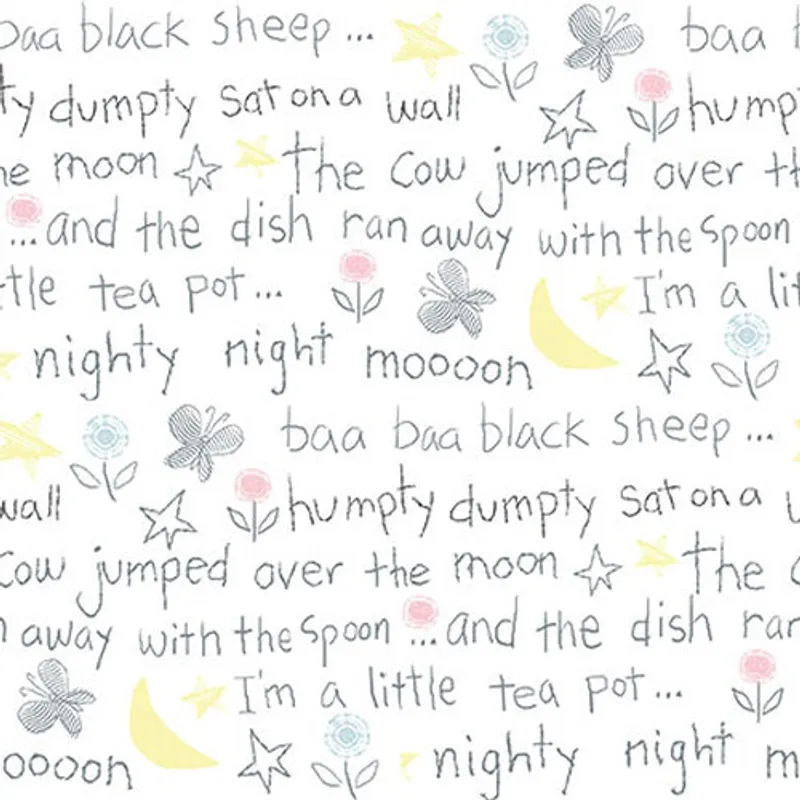 baa black sheep... baa b
ty dumpty sat on a wall hump
he moon the cow jumped over th
...and the dish ran away with the spoon
ttle tea pot... I'm a lit
nighty night moooon
baa baa black sheep...
wall humpty dumpty sat on a w
cow jumped over the moon the c
n away with the spoon ...and the dish ran
I'm a little tea pot...
oooon nighty night m